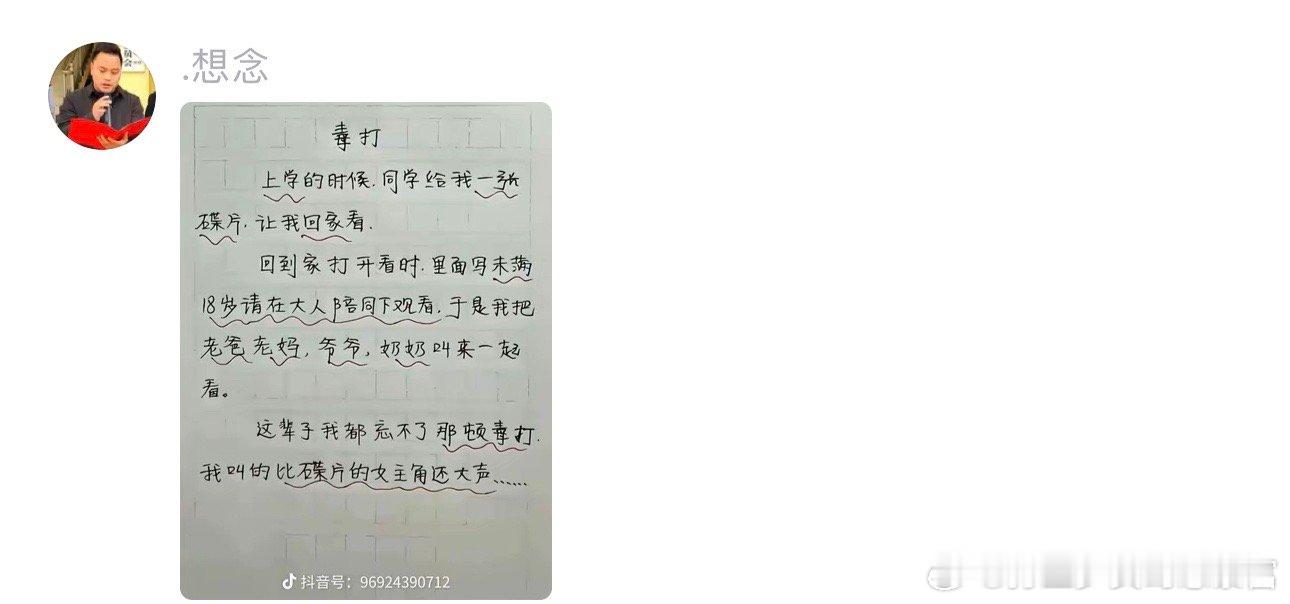 .想念
毒打
上学的时候.同学给我一张
碟片.让我回家看.
回到家打开看时.里面写未满
18岁请在大人陪同下观看.于是我把
老爸老妈,爷爷,奶奶叫来一起
看。
这辈子我都忘不了那顿毒打.
我叫的比碟片的女主角还大声......
抖音号：96924390712